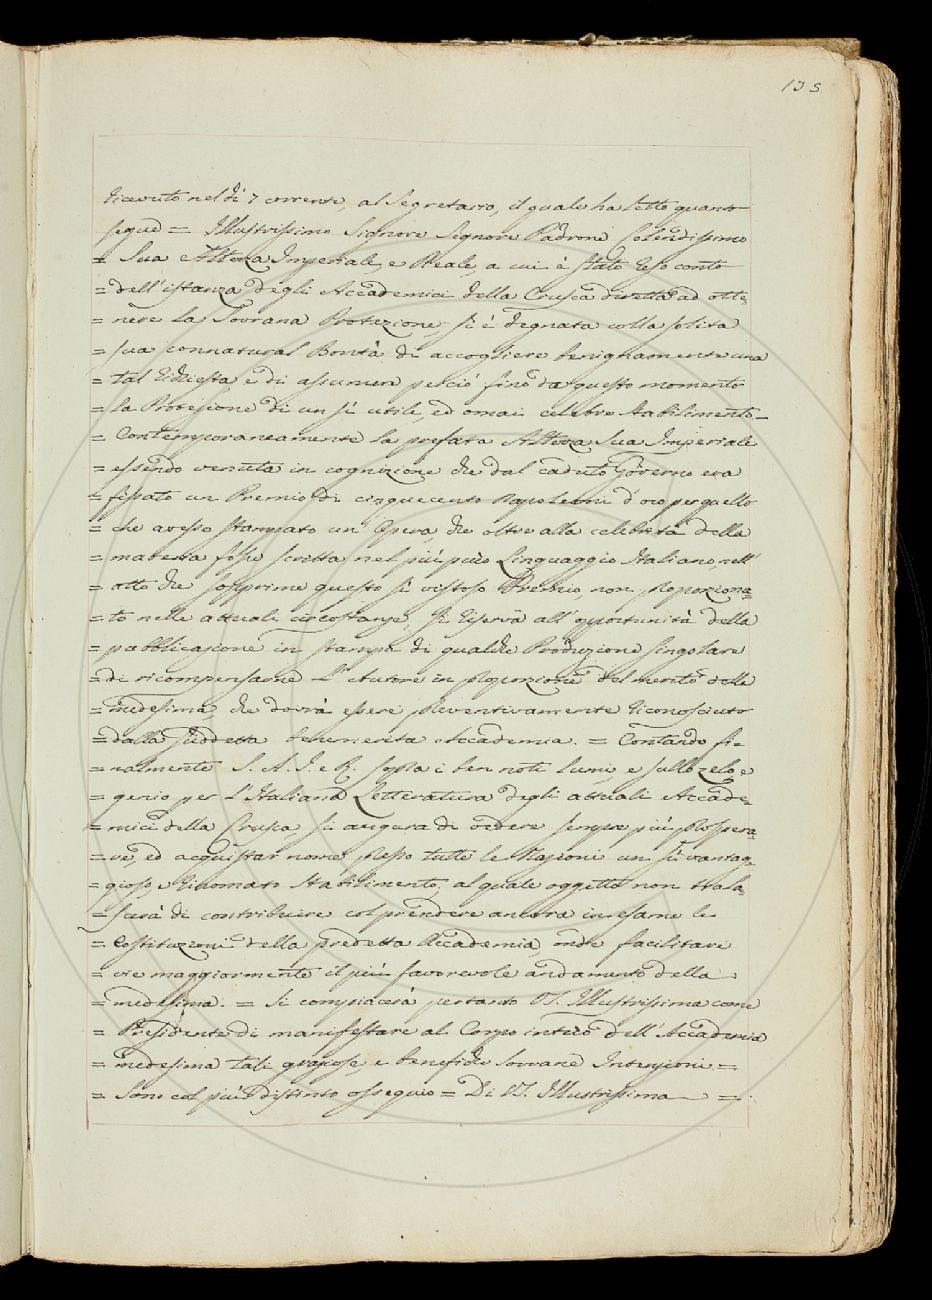 135
ricevuto nel dì 7 corrente, al Segretario, il quale ha letto quanto
segue = Illustrissimo Signore Signore Padrone Colendissimo
= Sua Altezza Imperiale, e Reale, a cui è stato reso conto
= dell'istanza degli Accademici della Crusca diretta ad otte=
= nere la Sovrana Protezione, si è degnata colla solita
= sua connatural Bontà di accogliere benignamente una
= tal richiesta e di assumere perciò fino da questo momento
= la Protezione di un sì utile, ed omai celebre stabilimento_
= Contemporaneamente la prefata Altezza Sua Imperiale
= essendo venuta in cognizione che dal caduto Governo era
= fissato un Premio di cinquecento Napoleoni d'oro per quello
= che avesse stampato un'Opera, che oltre alla celebrità della
= materia fosse scritta nel più puro Linguaggio Italiano, nell'
= atto che sopprime questo sì vistoso Premio, non proporziona=
= to nelle attuali circostanze, si riserva all'opportunità della
= pubblicazione in stampa di qualche Produzione singolare
= di ricompensarne l'Autore in proporzione del merito della
= medesima, che dovrà essere preventivamente riconosciuto
= dalla suddetta benemerita Accademia. = Contando fi=
= nalmente S. A. I. e R. sopra i ben noti lumi, e sullo zelo, e
= genio per l'Italiana Letteratura degli attuali Accade=
= mici della Crusca si augura di vedere sempre più prospera=
= re, ed acquistar nome presso tutte le Nazioni un sì vantag=
= gioso, e rinomato Stabilimento; al quale oggetto non trala=
= scerà di contribuire col prendere ancora in esame le
= Costituzioni della predetta Accademia, onde facilitare
= vie maggiormente il più favorevole andamento della
= medesima. = Si compiacerà pertanto VS. Illustrissima come
= Presidente di manifestare al Corpo intero dell'Accademia
= medesima tali graziose, e benefiche Sovrane Intenzioni =
= Sono col più distinto ossequio = Di VS. Illustrissima =